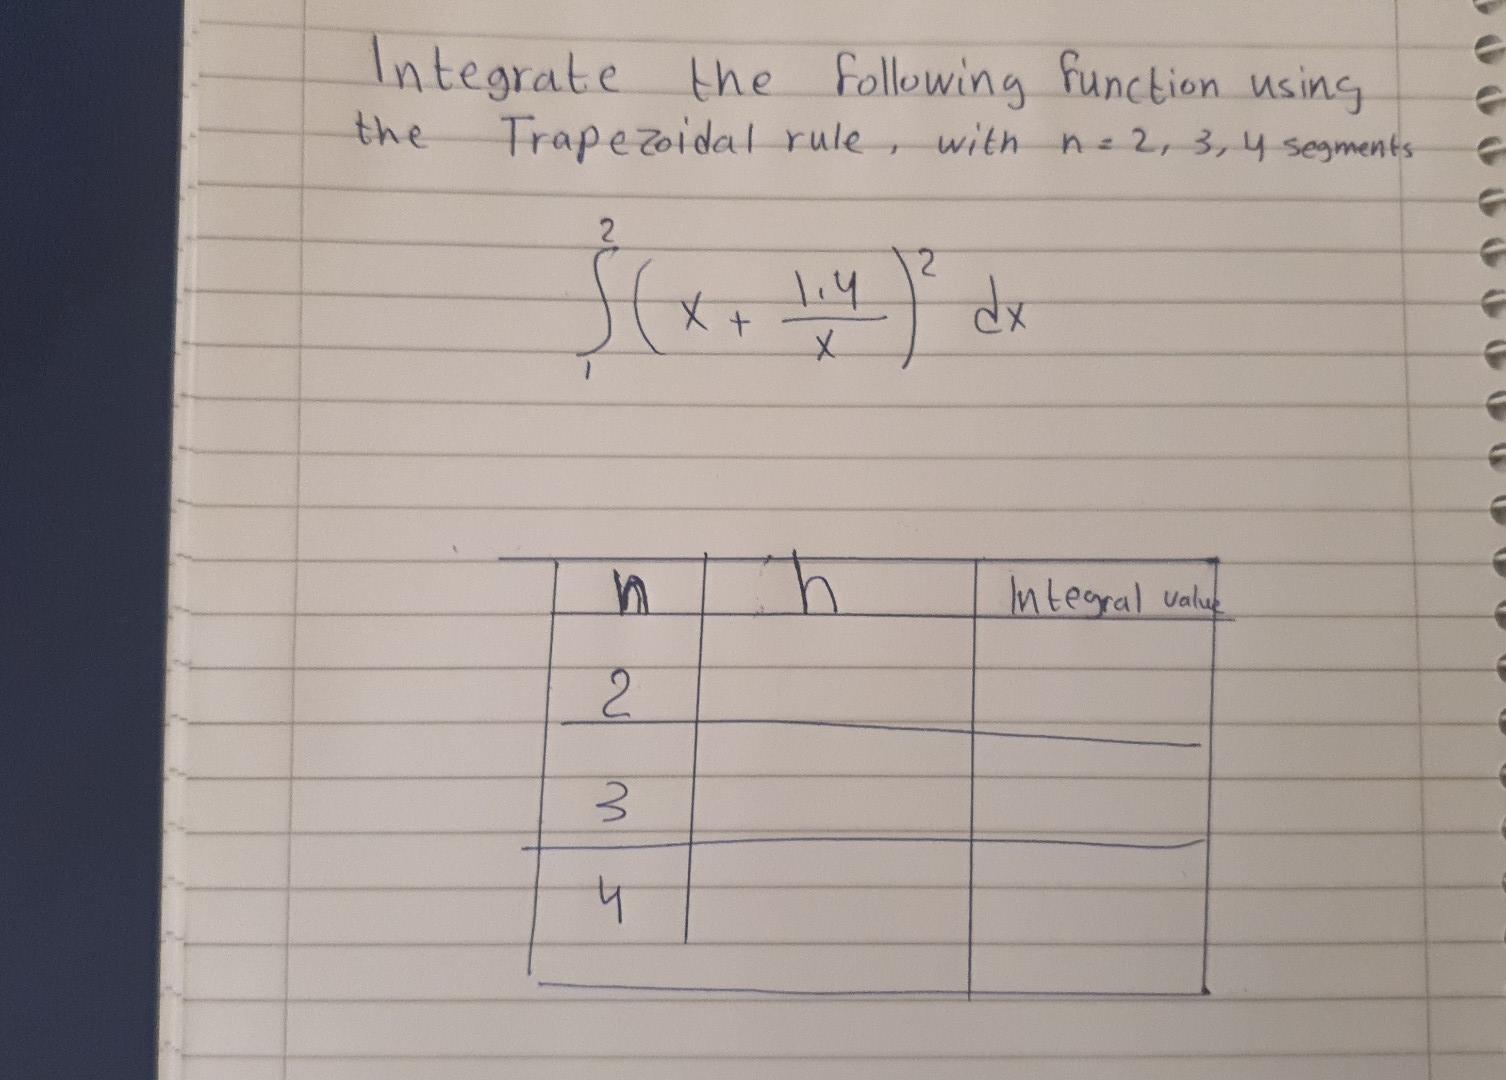 Integrate the following function using
the Trapezoidal rule, with n = 2, 3, 4 segments
∫₁² (x + 1.4/x)² dx
n h Integral value
2
3
4